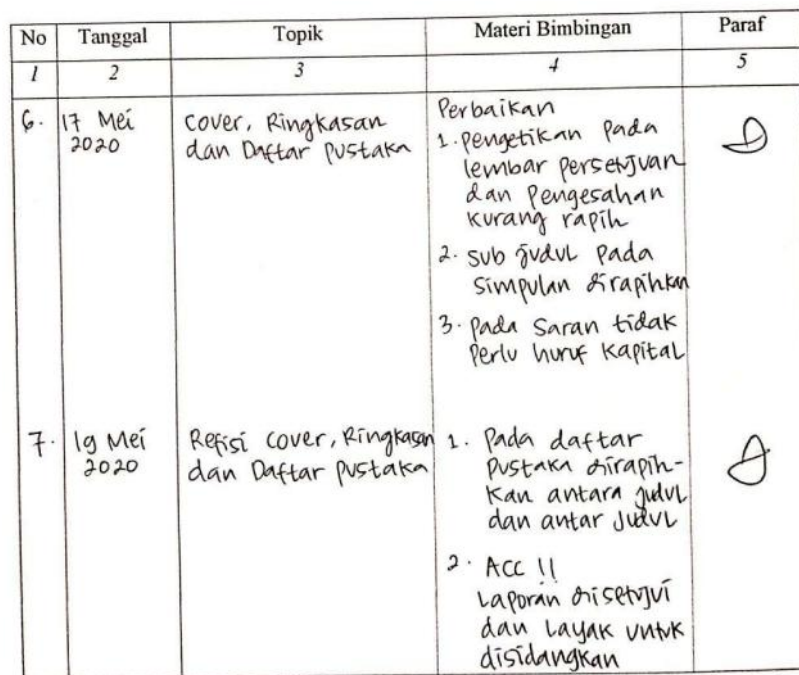 No Tanggal Topik Materi Bimbingan Paraf
1 2 3 4 5
6. 17 Mei Cover, Ringkasan Perbaikan
2020 dan Daftar Pustaka 1. pengetikan pada
lembar persetujuan
dan pengesahan
kurang rapih
2. sub judul pada
simpulan dirapihkan
3. pada saran tidak
perlu huruf kapital
7. 19 Mei Refisi cover, Ringkasan 1. Pada daftar
2020 dan Daftar pustaka pustaka dirapih-
kan antara judul
dan antar judul
2. ACC !!
Laporan disetujui
dan layak untuk
disidangkan